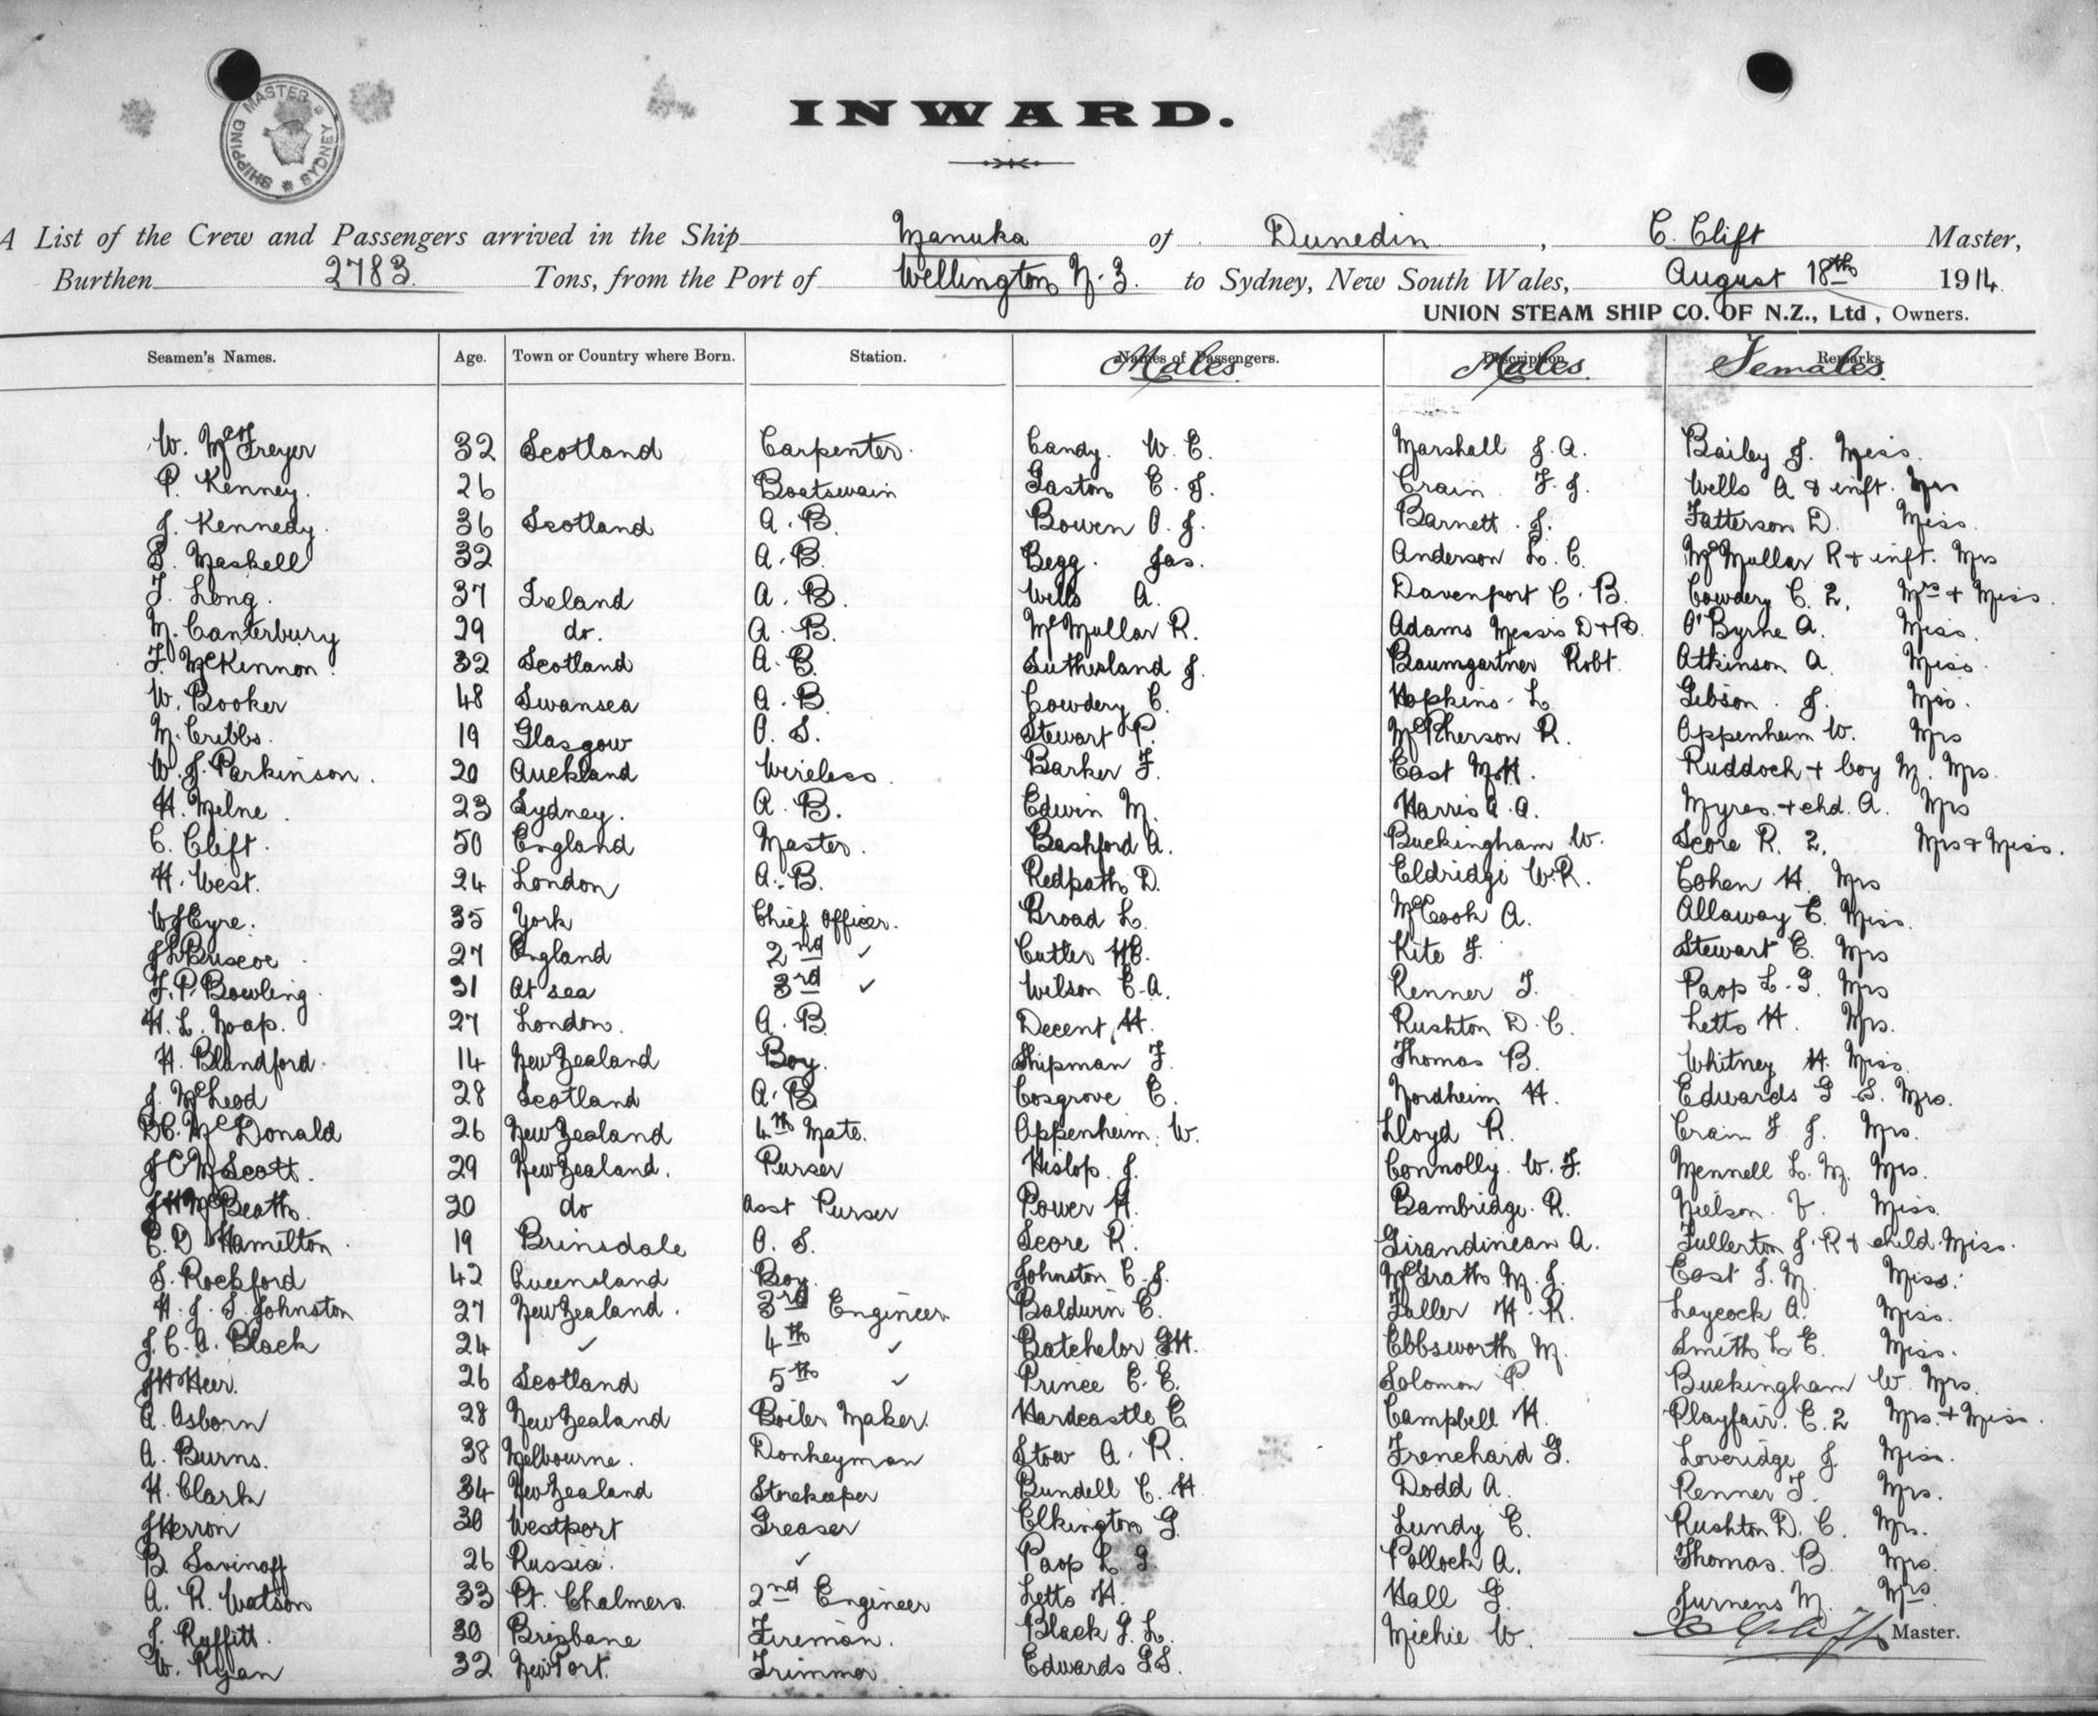 MASTER SHIPPING SYDNEY
INWARD.
A List of the Crew and Passengers arrived in the Ship Manuka of Dunedin, C. Clift Master,
Burthen 2783 Tons, from the Port of Wellington N.Z. to Sydney, New South Wales, August 18th 1914.
UNION STEAM SHIP CO. OF N.Z., Ltd, Owners.
Seamen's Names. Age. Town or Country where Born. Station. Names of Passengers. Description Remarks.
Males. Males. Females.
W. McFreyer 32 Scotland Carpenter. Candy. W. E. Marshall J. A. Bailey J. Miss.
P. Kenney. 26 Boatswain Gaston E. J. Crain F. J. Wells A & inft. Mrs
J. Kennedy. 36 Scotland A. B. Bowen O. J. Barnett. J. Patterson D. Miss.
S. Maskell 32 A. B. Begg. Jas. Anderson L. C. McMullar R & inft. Mrs
F. Long. 37 Ireland A. B. Wells A. Davenport C. B. Cowdery C. 2, Mrs & Miss.
M. Canterbury 29 do. A. B. McMullar R. Adams Messrs D & B. O'Byrne A. Miss.
F. McKinnon. 32 Scotland A. B. Sutherland J. Baumgartner Robt. Atkinson A. Miss.
W. Booker 48 Swansea A. B. Cowdery C. Hopkins L. Gibson. J. Miss.
M. Cribbs. 19 Glasgow O. S. Stewart P. McPherson R. Oppenheim W. Mrs
W. J. Parkinson. 20 Auckland Wireless. Barker F. East M. H. Ruddoch & boy M. Mrs.
H. Milne. 23 Sydney. A. B. Edwin M. Harris A. A. Myres & chd. A. Mrs
C. Clift. 50 England Master. Bashford A. Buckingham W. Score R. 2, Mrs & Miss.
H. West. 24 London A. B. Redpath D. Eldridge W. R. Cohen H. Mrs
W J Eyre. 35 York Chief Officer. Broad L. McCook A. Allaway E. Miss.
J L Briscoe 27 England 2nd ✓ Cutler H E. Kite F. Stewart E. Mrs
F. P. Bowling. 31 At sea 3rd ✓ Wilson E. A. Renner F. Paap L. G. Mrs
H. L. Noap. 27 London. A. B. Decent, H. Rushton D. C. Letts H. Mrs.
H. Blandford. 14 New Zealand Boy. Shipman F. Thomas B. Whitney H. Miss.
J. McLeod 28 Scotland A. B. Cosgrove E. Nordheim H. Edwards G S. Mrs.
D C. McDonald 26 New Zealand 4th Mate. Oppenheim. W. Lloyd R. Crain F. J. Mrs.
J C M Scott. 29 New Zealand. Purser Hislop. J. Connolly. W. F. Mennell L. M. Mrs.
J H McBeath. 20 do Asst Purser Power H. Bambridge. R. Neilson. V. Miss.
C. D Hamilton. 19 Brinsdale O. S. Score R. Girandinean A. Fullerton J. R & child Miss.
S. Rockford 42 Queensland Boy. Johnston C. J. McGrath M. J. East S. M. Miss.
H. J. S. Johnston 27 New Zealand. 3rd Engineer Baldwin E. Faller H. R. Laycock A. Miss.
J. C. A. Black 24 ✓ 4th ✓ Batchelor G H. Ebbsworth M. Smith L E. Miss.
J H Heer. 26 Scotland 5th ✓ Prince E. E. Solomon P. Buckingham W. Mrs.
A. Osborn 28 New Zealand Boiler Maker. Hardcastle E Campbell H. Playfair. E. 2 Mrs. & Miss.
A. Burns. 38 Melbourne. Donkeyman Stow A. R. Frenchard G. Loveridge J Miss.
H. Clark 34 New Zealand Storekeeper Bundell C. H. Dodd A. Renner F. Mrs.
J Herron 30 Westport Greaser Elkington G. Lundy E. Rushton D. C. Mrs.
B. Savinoff 26 Russia. ✓ Paap L G. Pollock A. Thomas. B. Mrs.
A. R. Watson 33 Pt. Chalmers. 2nd Engineer Letts H. Hall G. Furness M. Mrs
J. Ruffitt. 30 Brisbane Fireman. Black G. L. Michie W. C Clift Master.
W. Ryan 32 New Port. Trimmer Edwards G S.